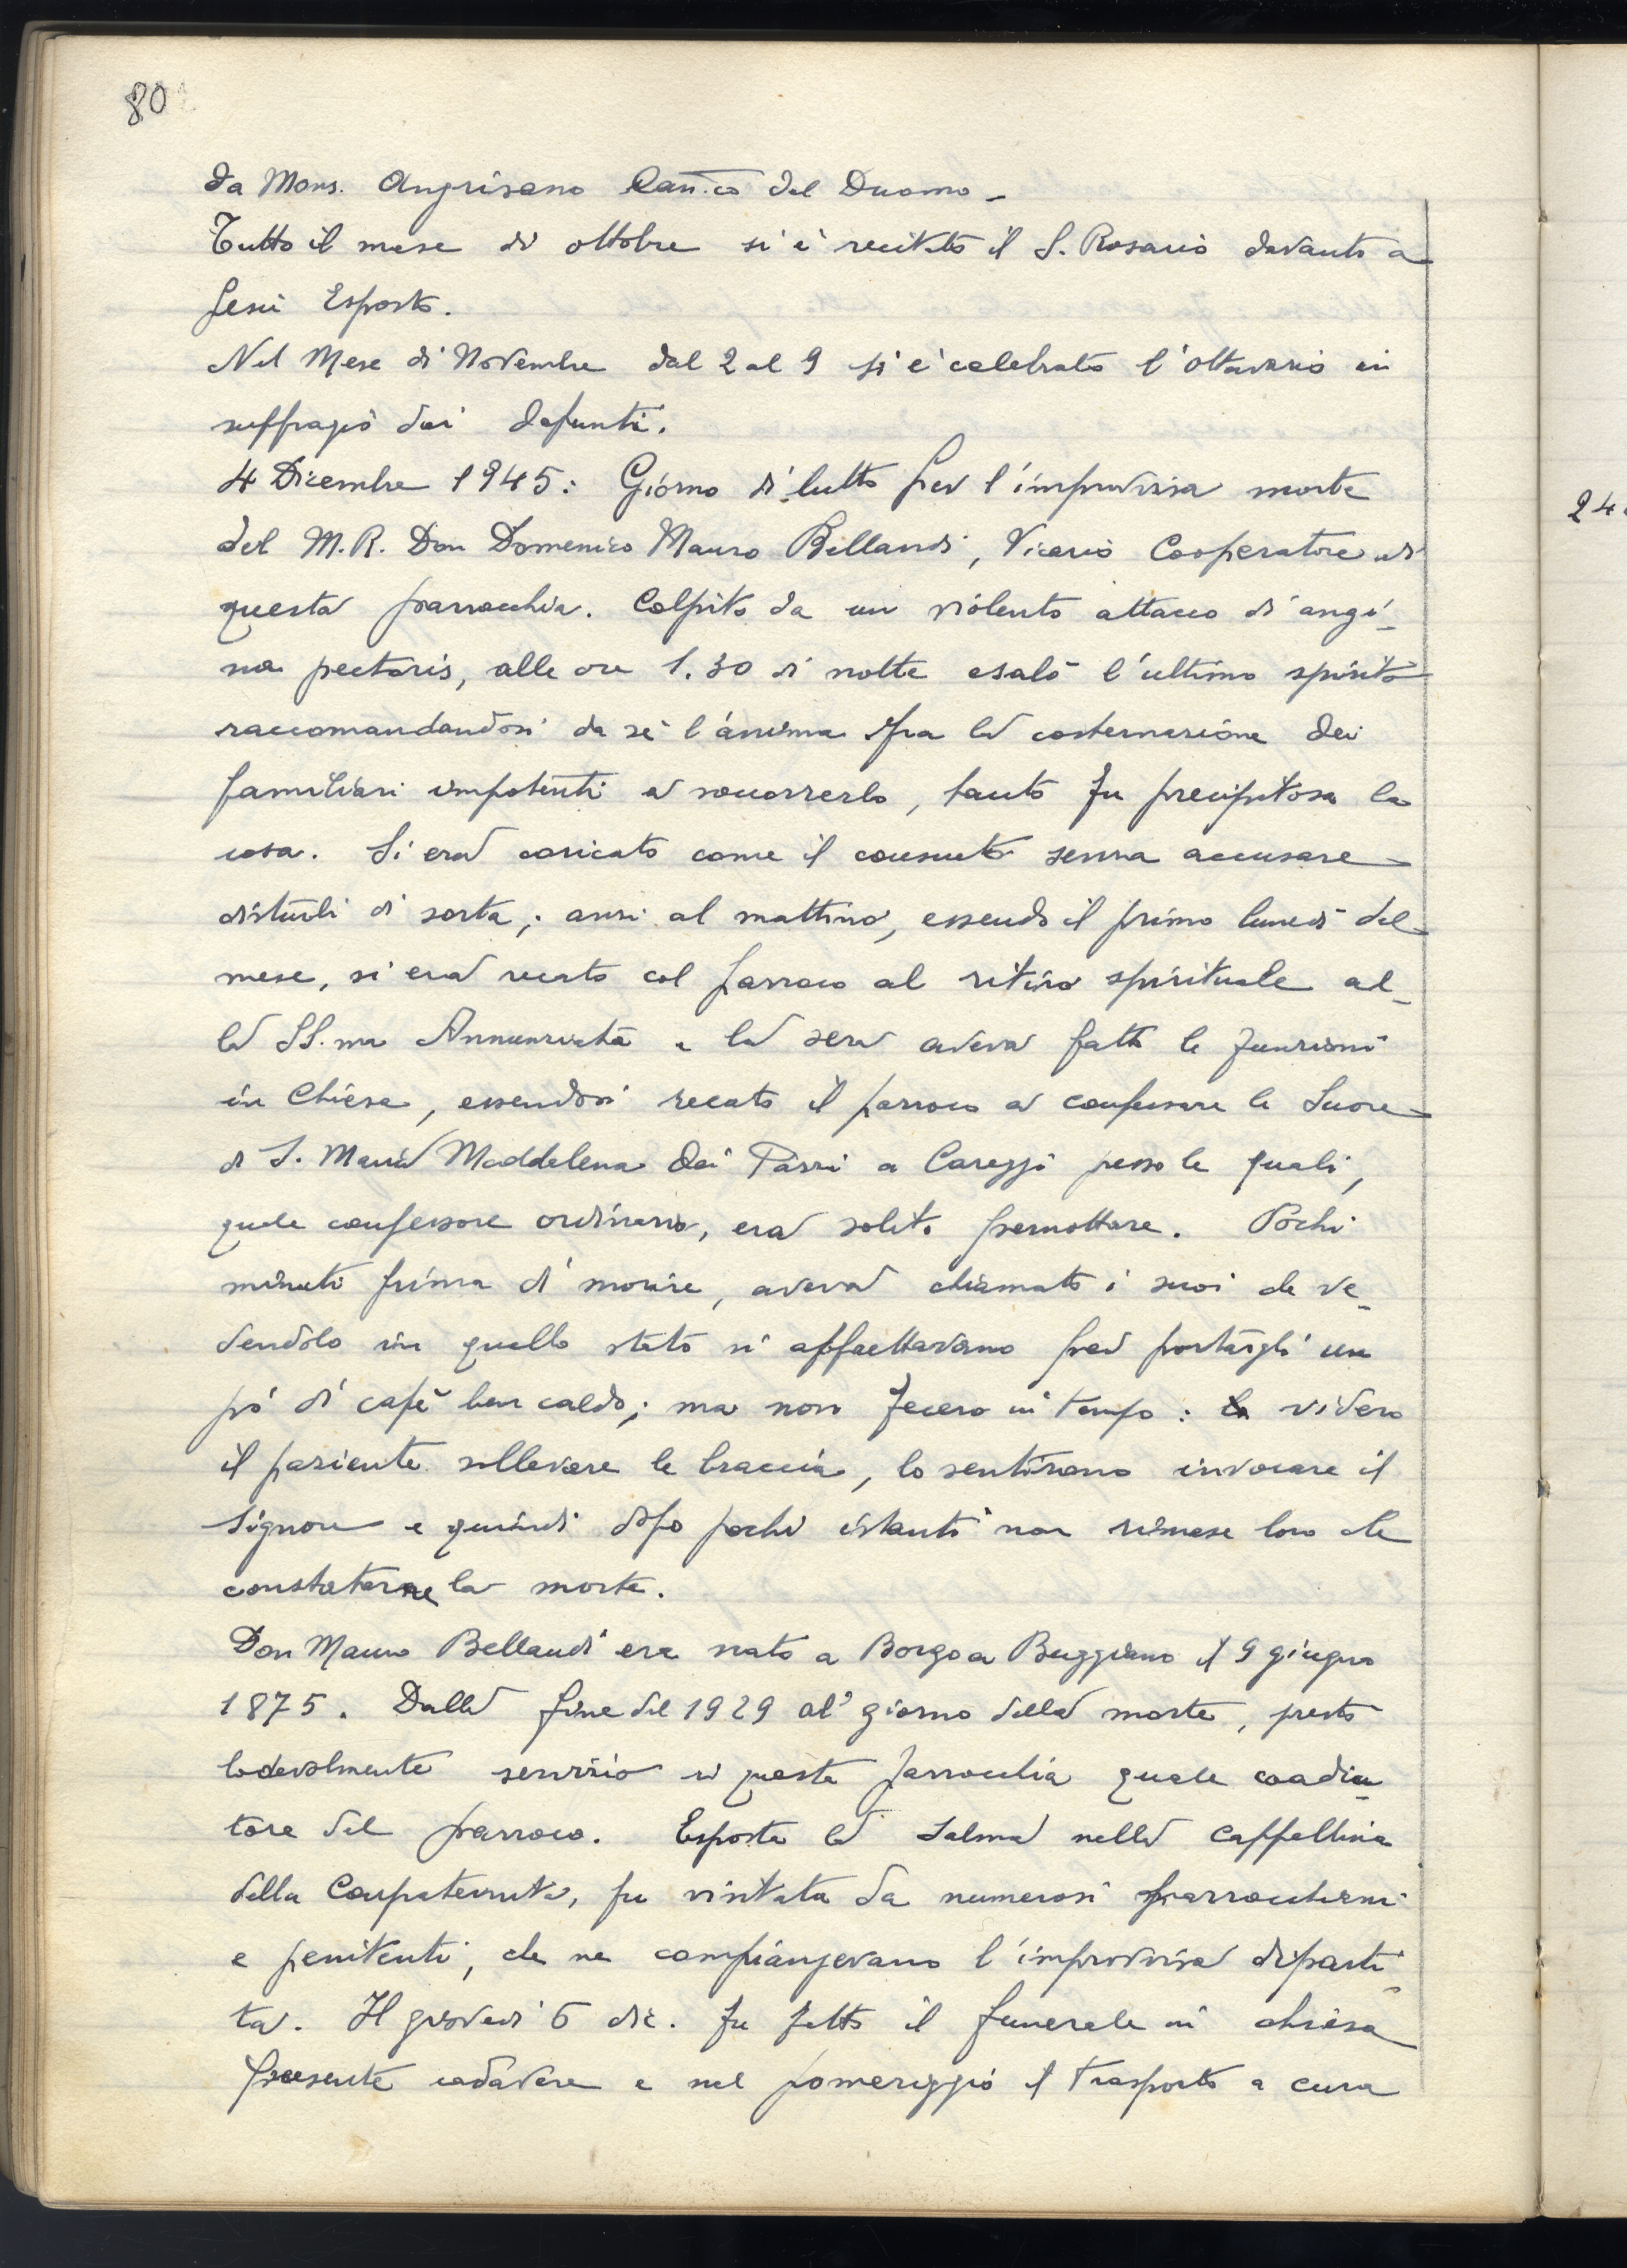 80
da Mons. Angrisano Can.co del Duomo -
Tutto il mese di ottobre si è recitato il S. Rosario davanti a
Gesù Esposto.
Nel Mese di Novembre dal 2 al 9 si è celebrato l'ottavario in
suffragio dei defunti.
4 Dicembre 1945: Giorno di lutto per l'improvvisa morte
del M.R. Don Domenico Mauro Bellandi, Vicario Cooperatore di
questa parrocchia. Colpito da un violento attacco di angi-
na pectoris, alle ore 1.30 di notte esalò l'ultimo spirito
raccomandandosi da sè l'anima fra la costernazione dei
familiari impotenti a soccorrerlo, tanto fu precipitosa la
cosa. Si era coricato come il consueto senza accusare
disturbi di sorta; anzi al mattino, essendo il primo lunedì del
mese, si era recato col parroco al ritiro spirituale al-
la SS.ma Annunziata e la sera aveva fatto le funzioni
in Chiesa, essendosi recato il parroco a confessare le Suore
di S. Maria Maddalena dei Pazzi a Careggi presso le quali,
quale confessore ordinario, era solito pernottare. Pochi
minuti prima di morire, aveva chiamato i suoi che ve-
dendolo in quello stato si affrettavano per portargli un
pò di cafè ben caldo; ma non fecero in tempo: videro
il paziente sollevare le braccia, lo sentirono invocare il
Signore e quindi dopo pochi istanti non rimase loro che
constatarne la morte.
Don Mauro Bellandi era nato a Borgo a Buggiano il 9 giugno
1875. Dalla fine del 1929 al giorno della morte, prestò
lodevolmente servizio in questa parrocchia quale coadiu-
tore del parroco. Esposta la salma nella Cappellina
della Compaternita, fu visitata da numerosi parrocchiani
e penitenti, che ne compiangevano l'improvvisa diparti-
ta. Il giovedì 6 dic. fu fatto il funerale in chiesa
presente cadavere e nel pomeriggio il trasporto a cura
24